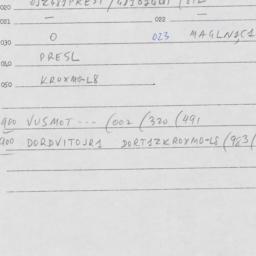 020
021 — 022 —
030 0 023 MAGLN1C1
040 PRESL
050 KROXMG-L8
900 VUSMOT --- (002 (320 (491
900 DORDVITOJR1 DORT1ZKROXMG-L8 (963(